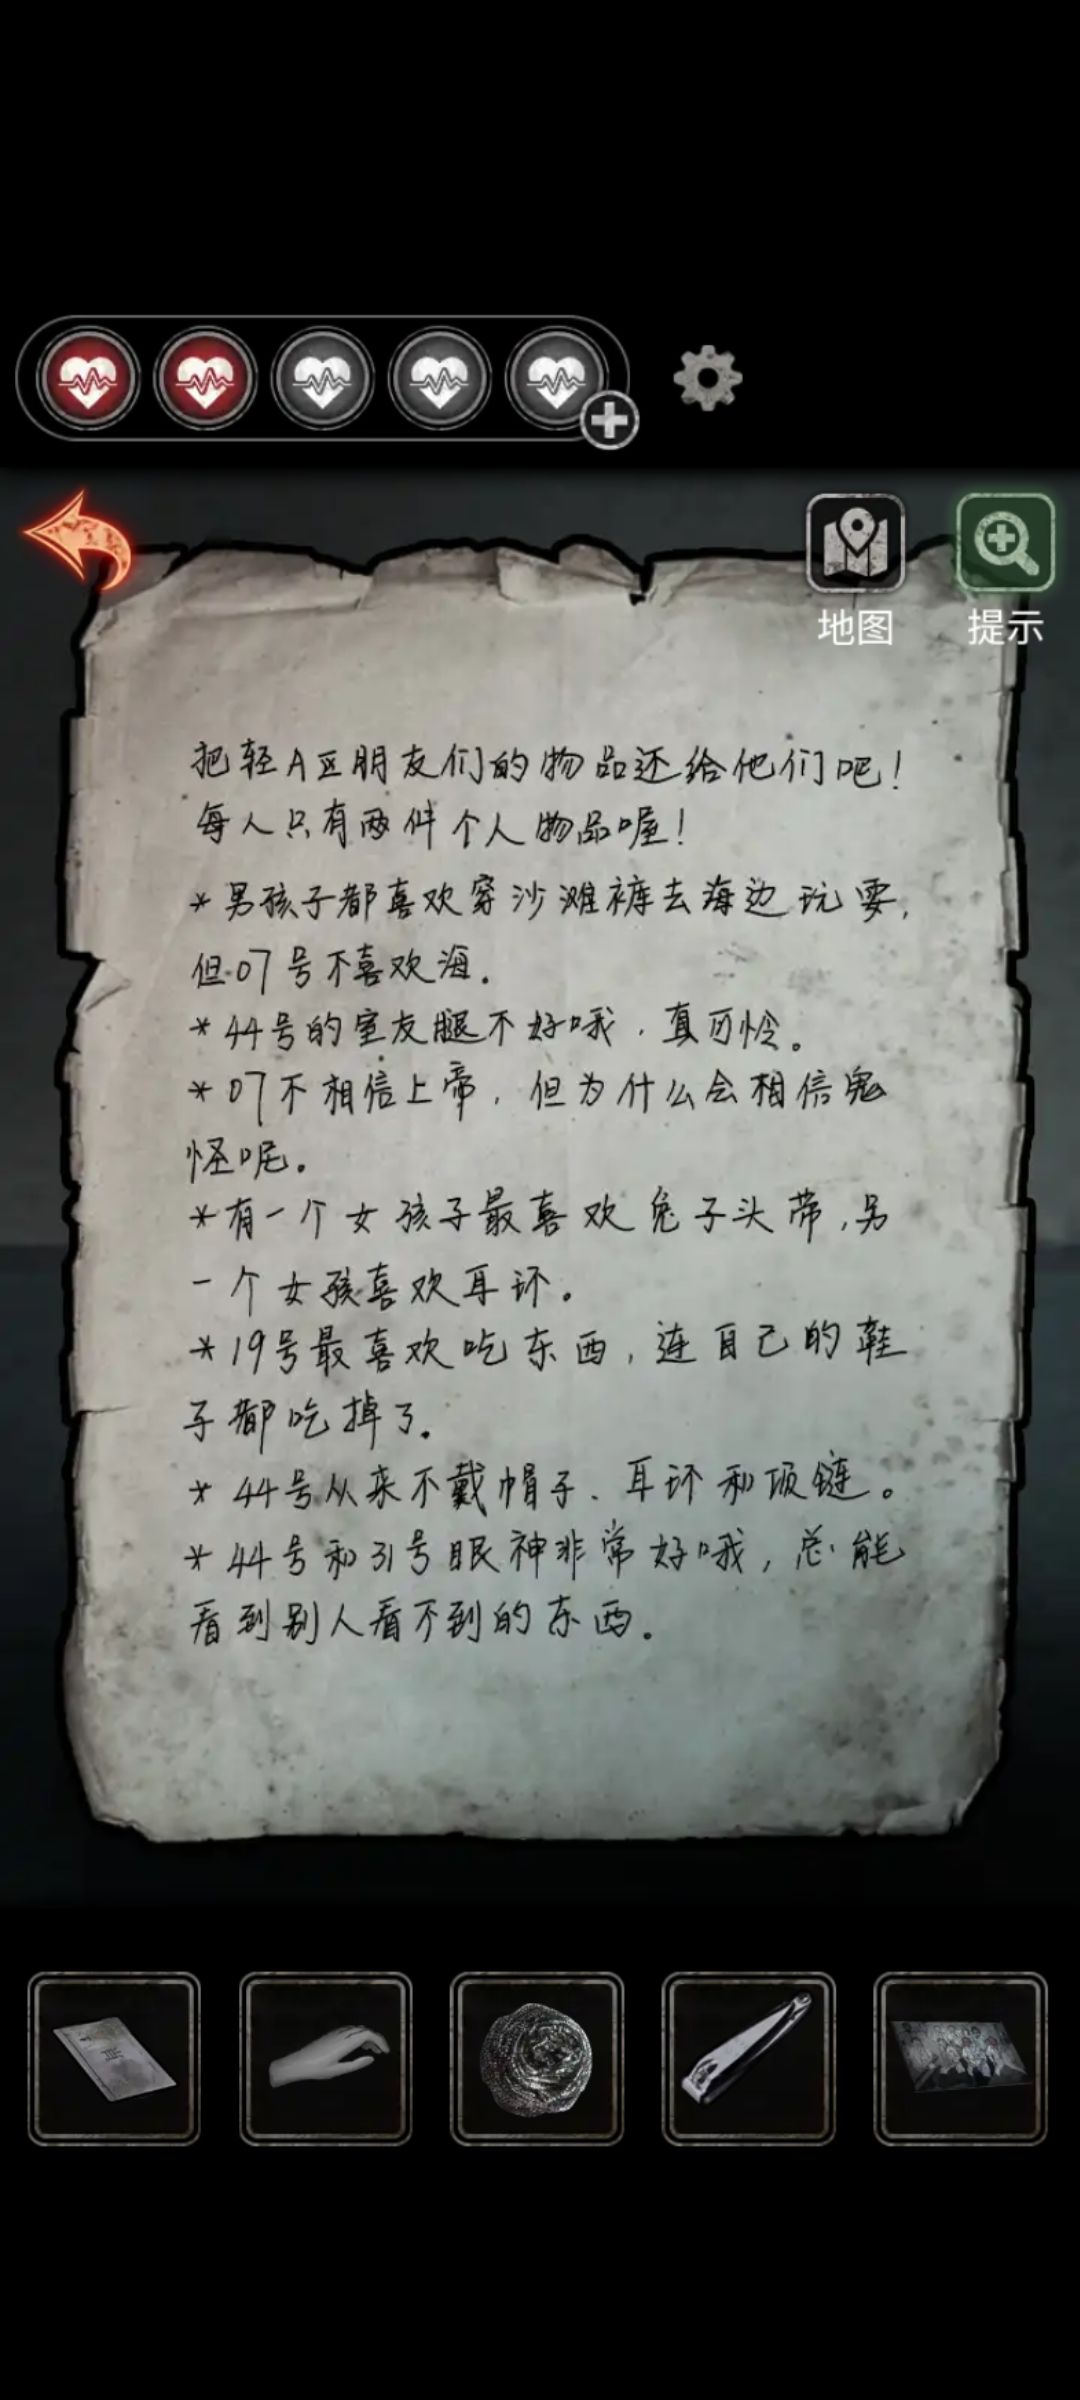 地图
提示
把轻A区朋友们的物品还给他们吧！
每人只有两件个人物品喔！
*男孩子都喜欢穿沙滩裤去海边玩耍,
但07号不喜欢海.
*44号的室友腿不好哦.真可怜。
*07不相信上帝.但为什么会相信鬼
怪呢.
*有一个女孩子最喜欢兔子头带,另
一个女孩喜欢耳环。
*19号最喜欢吃东西,连自己的鞋
子都吃掉了.
*44号从来不戴帽子、耳环和项链。
*44号和31号眼神非常好哦,总能
看到别人看不到的东西.